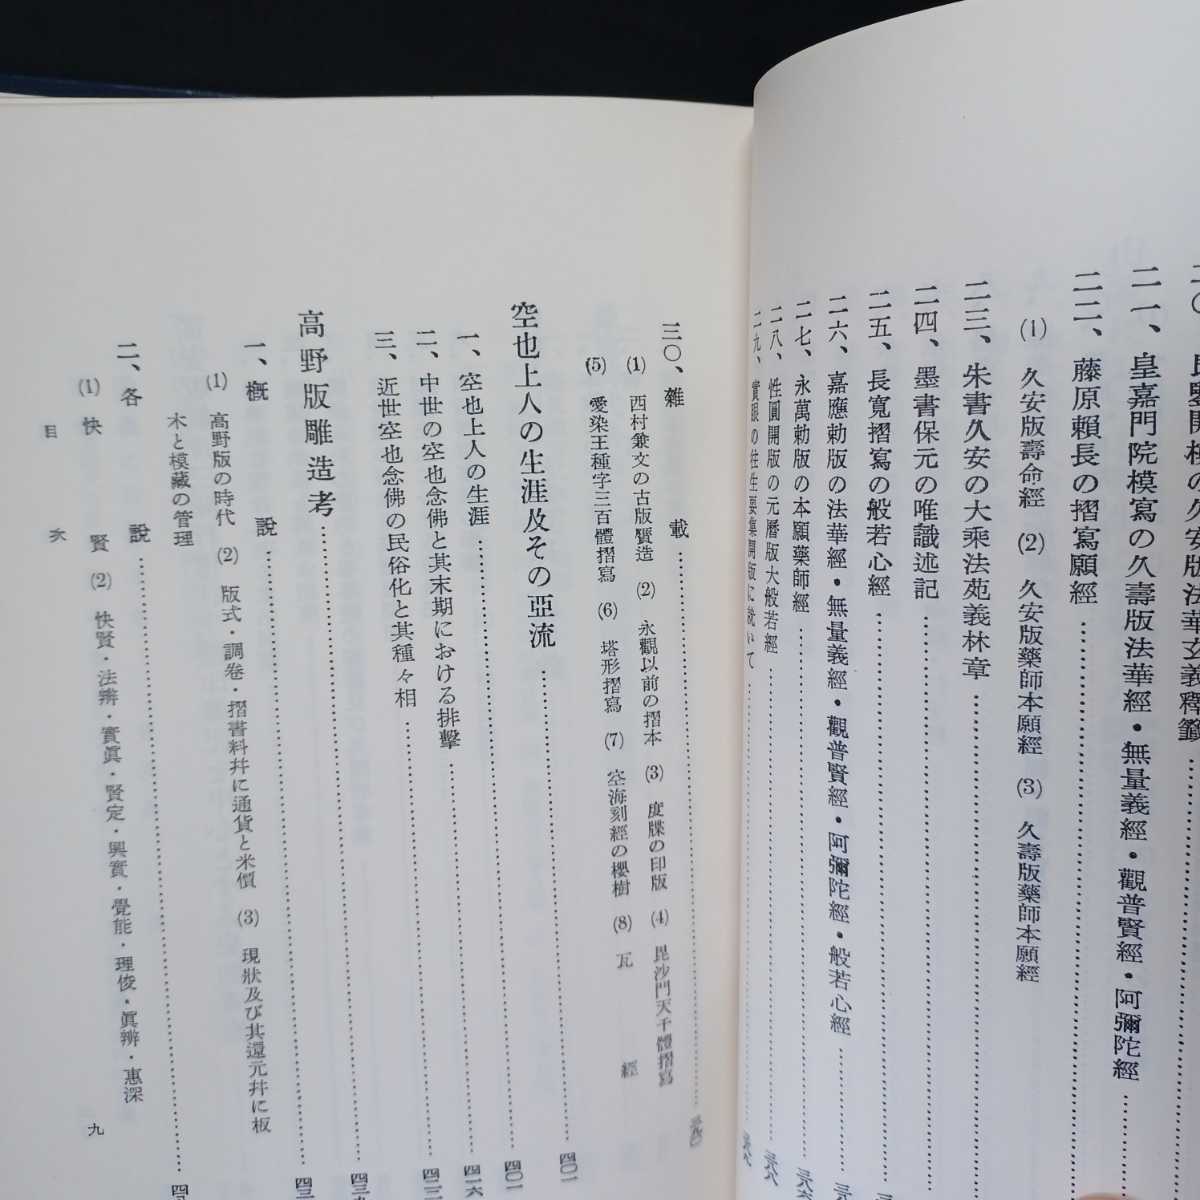 久安版法華玄義釋籤
二一、皇嘉門院模寫の久壽版法華經・無量義經・觀普賢經・阿彌陀經
二二、藤原賴長の摺寫願經
(1) 久安版壽命經 (2) 久安版藥師本願經 (3) 久壽版藥師本願經
二三、朱書久安の大乘法苑義林章
二四、墨書保元の唯識述記
二五、長寬摺寫の般若心經
二六、嘉應勅版の法華經・無量義經・觀普賢經・阿彌陀經・般若心經
二七、永萬勅版の本願藥師經
二八、性圓開版の元曆版大般若經
二九、實眼の往生要集開版に就いて
三〇、雜載
(1) 西村兼文の古版贋造 (2) 永觀以前の摺本 (3) 度牒の印版 (4) 毘沙門天千體摺寫
(5) 愛染王種字三百體摺寫 (6) 塔形摺寫 (7) 空海刻經の櫻樹 (8) 瓦經
空也上人の生涯及その亞流 四〇一
一、空也上人の生涯 四〇一
二、中世の空也念佛と其末期における排擊 四一六
三、近世空也念佛の民俗化と其種々相
高野版雕造考
一、概說
(1) 高野版の時代 (2) 版式・調卷・摺書料幷に通貨と米價 (3) 現狀及び其還元幷に板
木と模藏の管理
二、各說
(1) 快賢 (2) 快賢・法辨・實眞・賢定・興實・覺能・理俊・眞辨・惠深
目次
九